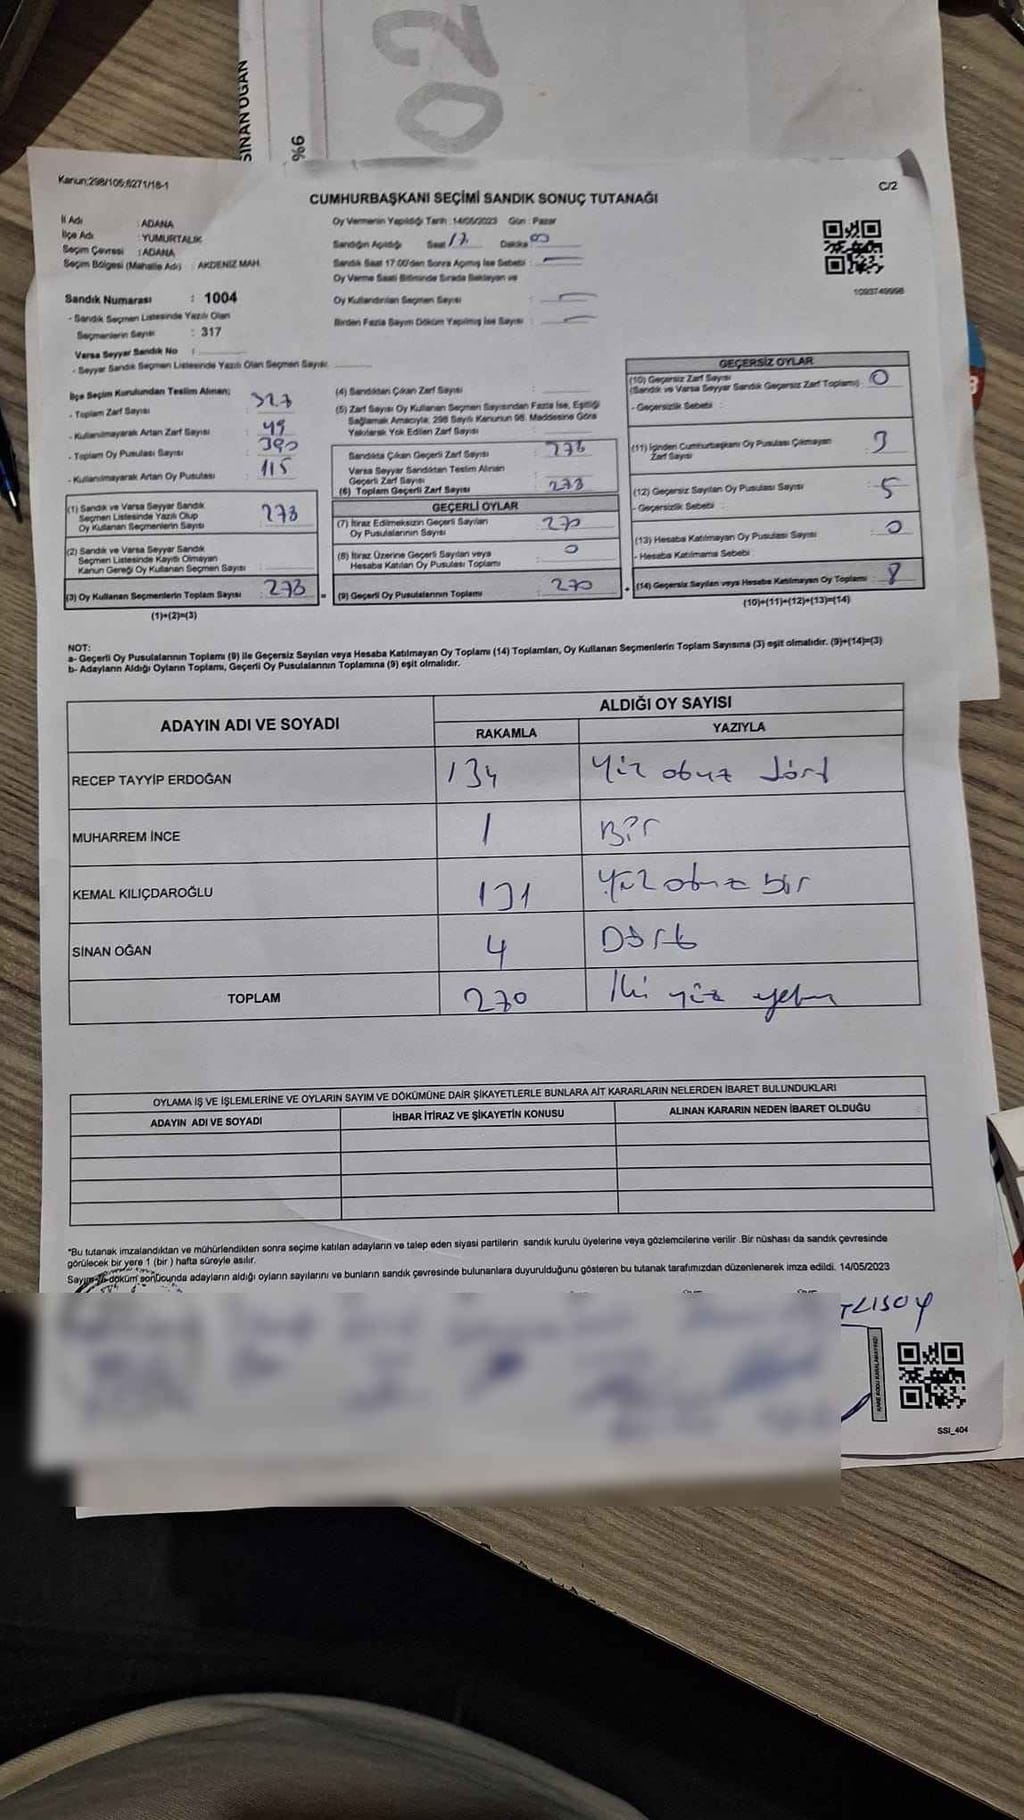 SİNAN OĞAN
%6
Kanun:298/105;6271/18-1
C/2
CUMHURBAŞKANI SEÇİMİ SANDIK SONUÇ TUTANAĞI
İl Adı : ADANA
İlçe Adı : YUMURTALIK
Seçim Çevresi : ADANA
Seçim Bölgesi (Mahalle Adı) : AKDENİZ MAH.
Oy Vermenin Yapıldığı Tarih : 14/05/2023 Gün : Pazar
Sandığın Açıldığı Saat 17 Dakika 00
Sandık Saat 17:00'den Sonra Açılmış İse Sebebi :
Oy Verme Saati Bitiminde Sırada Bekleyen ve
Oy Kullandırılan Seçmen Sayısı :
Birden Fazla Sayım Döküm Yapılmış İse Sayısı :
1093749998
Sandık Numarası : 1004
- Sandık Seçmen Listesinde Yazılı Olan
Seçmenlerin Sayısı : 317
Varsa Seyyar Sandık No :
- Seyyar Sandık Seçmen Listesinde Yazılı Olan Seçmen Sayısı:
İlçe Seçim Kurulundan Teslim Alınan;
- Toplam Zarf Sayısı : 327
- Kullanılmayarak Artan Zarf Sayısı : 49
- Toplam Oy Pusulası Sayısı : 390
- Kullanılmayarak Artan Oy Pusulası : 115
(1) Sandık ve Varsa Seyyar Sandık
Seçmen Listesinde Yazılı Olup
Oy Kullanan Seçmenlerin Sayısı : 278
(2) Sandık ve Varsa Seyyar Sandık
Seçmen Listesinde Kayıtlı Olmayan
Kanun Gereği Oy Kullanan Seçmen Sayısı :
(3) Oy Kullanan Seçmenlerin Toplam Sayısı : 278 =
(1)+(2)=(3)
(4) Sandıktan Çıkan Zarf Sayısı :
(5) Zarf Sayısı Oy Kullanan Seçmen Sayısından Fazla İse, Eşitliği
Sağlamak Amacıyla; 298 Sayılı Kanunun 98. Maddesine Göre
Yakılarak Yok Edilen Zarf Sayısı :
Sandıkta Çıkan Geçerli Zarf Sayısı : 278
Varsa Seyyar Sandıktan Teslim Alınan
Geçerli Zarf Sayısı :
(6) Toplam Geçerli Zarf Sayısı : 278
GEÇERLİ OYLAR
(7) İtiraz Edilmeksizin Geçerli Sayılan
Oy Pusulasının Sayısı : 270
(8) İtiraz Üzerine Geçerli Sayılan veya
Hesaba Katılan Oy Pusulası Toplamı : 0
(9) Geçerli Oy Pusulalarının Toplamı : 270 +
GEÇERSİZ OYLAR
(10) Geçersiz Zarf Sayısı
(Sandık ve Varsa Seyyar Sandık Geçersiz Zarf Toplamı) : 0
- Geçersizlik Sebebi :
(11) İçinden Cumhurbaşkanı Oy Pusulası Çıkmayan
Zarf Sayısı : 3
(12) Geçersiz Sayılan Oy Pusulası Sayısı : 5
- Geçersizlik Sebebi :
(13) Hesaba Katılmayan Oy Pusulası Sayısı : 0
- Hesaba Katılmama Sebebi :
(14) Geçersiz Sayılan veya Hesaba Katılmayan Oy Toplamı : 8
(10)+(11)+(12)+(13)=(14)
NOT:
a- Geçerli Oy Pusulalarının Toplamı (9) ile Geçersiz Sayılan veya Hesaba Katılmayan Oy Toplamı (14) Toplamları, Oy Kullanan Seçmenlerin Toplam Sayısına (3) eşit olmalıdır. (9)+(14)=(3)
b- Adayların Aldığı Oyların Toplamı, Geçerli Oy Pusulalarının Toplamına (9) eşit olmalıdır.
ADAYIN ADI VE SOYADI
ALDIĞI OY SAYISI
RAKAMLA YAZIYLA
RECEP TAYYİP ERDOĞAN 134 Yüz otuz dört
MUHARREM İNCE 1 Bir
KEMAL KILIÇDAROĞLU 131 Yüz otuz bir
SİNAN OĞAN 4 Dört
TOPLAM 270 İki yüz yetmiş
OYLAMA İŞ VE İŞLEMLERİNE VE OYLARIN SAYIM VE DÖKÜMÜNE DAİR ŞİKAYETLERLE BUNLARA AİT KARARLARIN NELERDEN İBARET BULUNDUKLARI
ADAYIN ADI VE SOYADI İHBAR İTİRAZ VE ŞİKAYETİN KONUSU ALINAN KARARIN NEDEN İBARET OLDUĞU
*Bu tutanak imzalandıktan ve mühürlendikten sonra seçime katılan adayların ve talep eden siyasi partilerin sandık kurulu üyelerine veya gözlemcilerine verilir .Bir nüshası da sandık çevresinde
görülecek bir yere 1 (bir ) hafta süreyle asılır.
Sayım ve döküm sonucunda adayların aldığı oyların sayılarını ve bunların sandık çevresinde bulunanlara duyurulduğunu gösteren bu tutanak tarafımızdan düzenlenerek imza edildi. 14/05/2023
SSI_404